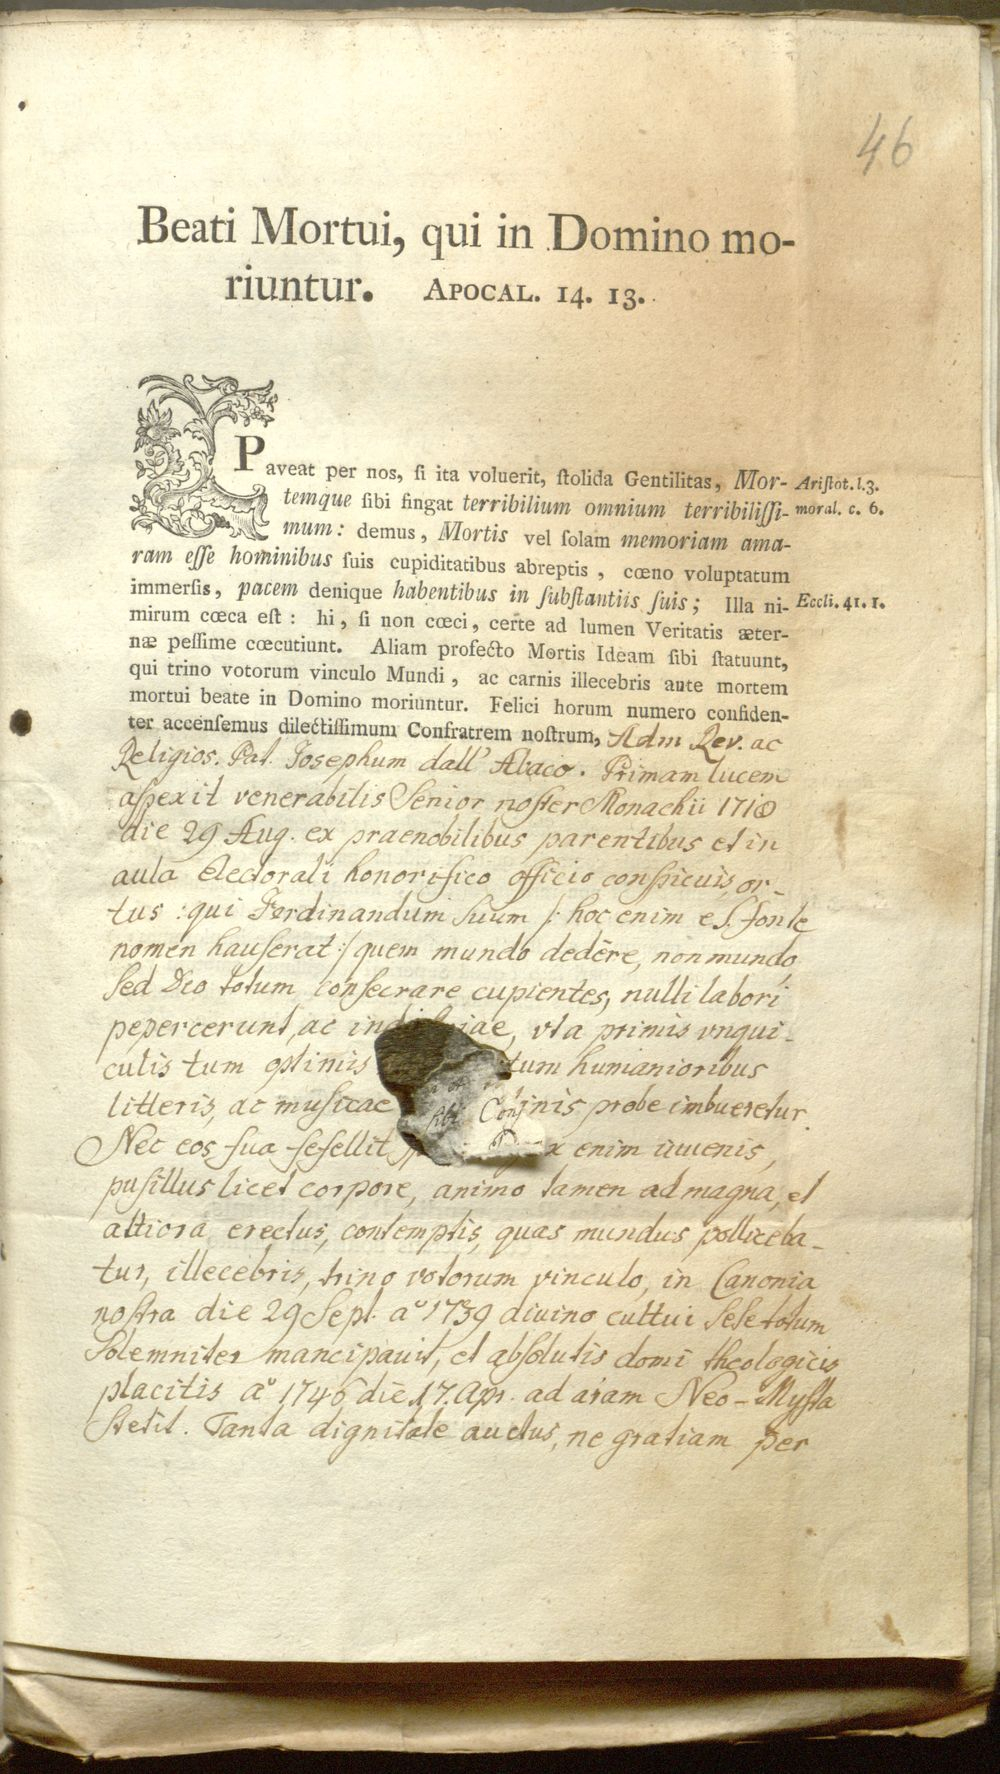 46
Beati Mortui, qui in Domino mo-
riuntur. APOCAL. 14. 13.
Paveat per nos, ſi ita voluerit, ſtolida Gentilitas, Mor- Ariſtot. l. 3.
temque ſibi fingat terribilium omnium terribiliſſi- moral. c. 6.
mum: demus, Mortis vel ſolam memoriam ama-
ram eſſe hominibus ſuis cupiditatibus abreptis, cœno voluptatum
immerſis, pacem denique habentibus in ſubſtantiis ſuis; Illa ni- Eccli. 41. 1.
mirum cœca eſt: hi, ſi non cœci, certe ad lumen Veritatis æter-
næ peſſime cœcutiunt. Aliam profecto Mortis Ideam ſibi ſtatuunt,
qui trino votorum vinculo Mundi, ac carnis illecebris ante mortem
mortui beate in Domino moriuntur. Felici horum numero confiden-
ter accenſemus dilectiſſimum Confratrem noſtrum, Adm Rev. ac
Religios. Pat. Josephum dall' Abaco. Primam lucem
aſpexit venerabilis Senior noſter Monachii
die 29 Aug. ex praenobilibus parentibus et in
aula electorali honorifico officio conſpicuis, or-
tus: qui Ferdinandum ſuum /: hoc enim e S. fonte
nomen hauſerat :/ quem mundo dedêre, non mundo,
ſed Deo totum conſecrare cupientes, nulli labori
pepercerunt, ac iae, vt a primis vngui-
culis tum optimis tum humanioribus
litteris, ac musicae probe imbueretur.
Conſ
Nec eos ſua fefellit enim iuvenis,
puſillus licet corpore, animo tamen ad magna, et
altiora erectus, contemptis, quas mundus polliceba-
tur, illecebris, trino votorum vinculo, in Canonia
noſtra die 29 Sept. aº 1739 divino cultui ſeſe totum
Solemniter mancipauit, et abſolutis domi theologicis
placitis aº 1746 die 17. Apr. ad aram Neo-Myſta
Stetit. Tanta dignitate auctus, ne gratiam per